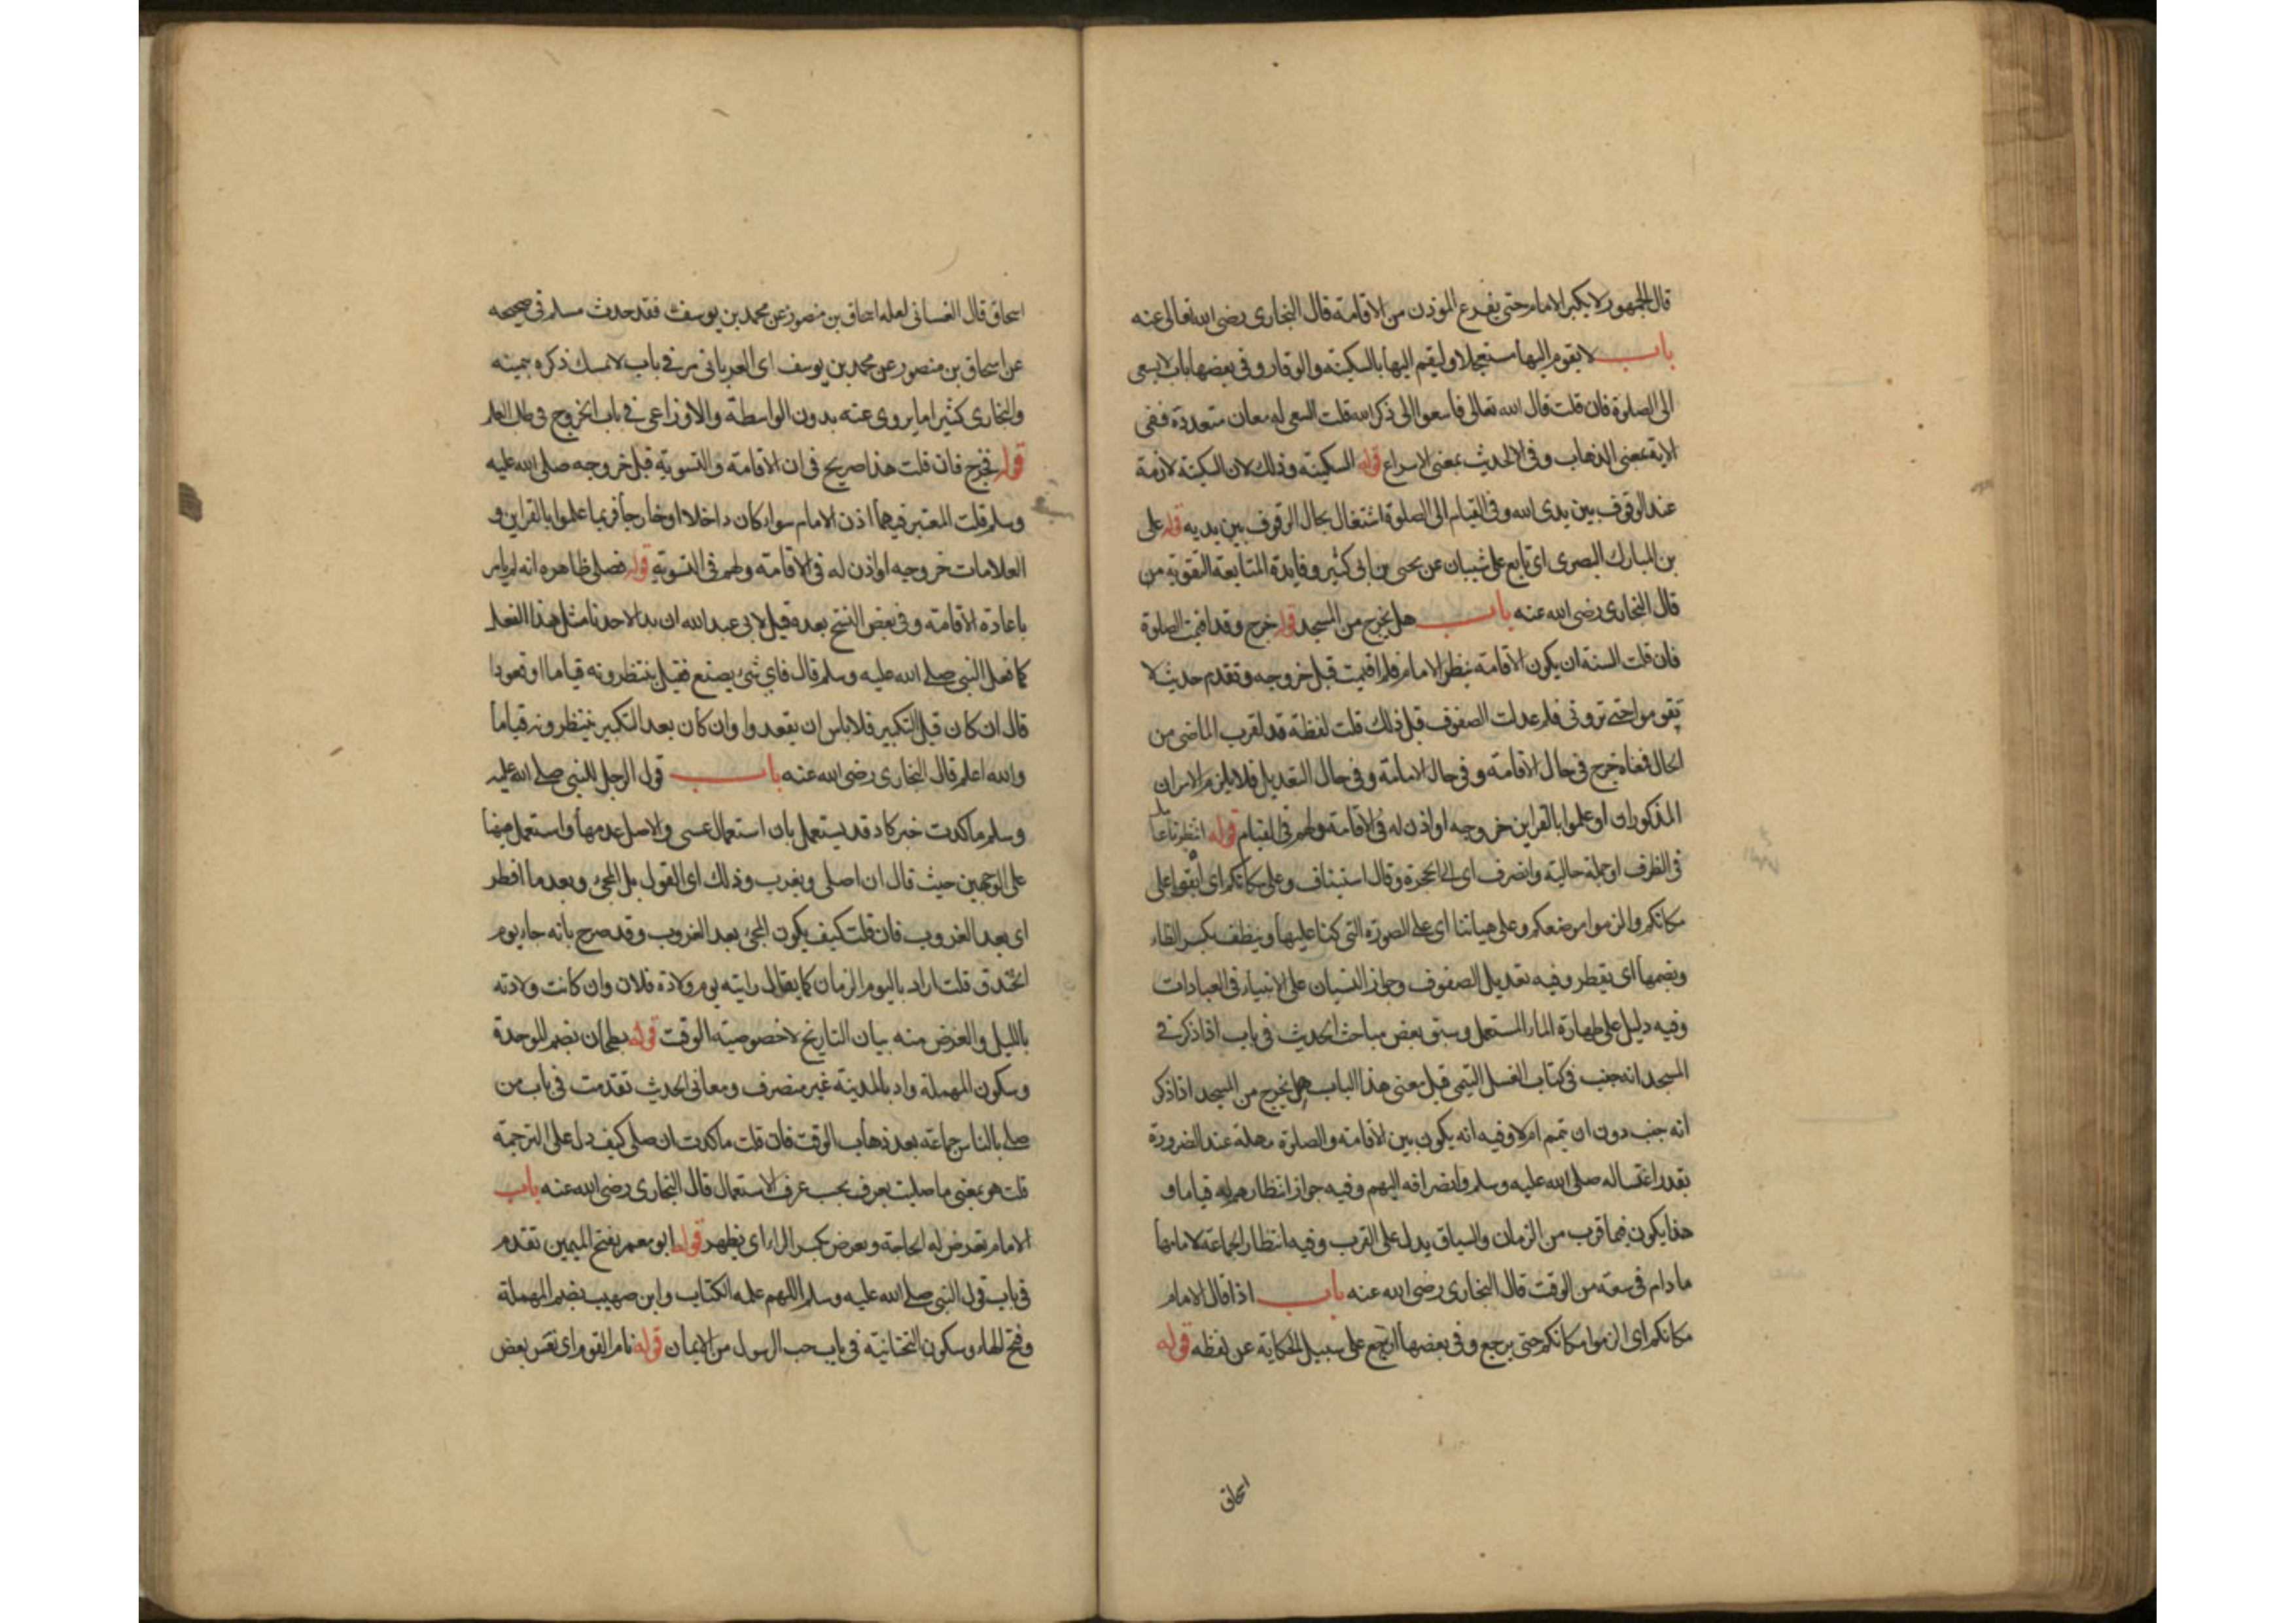 قال الجمهور لا يكبر الامام حتى يفرغ الموذن من الاقامة قال البخارى رضى الله تعالى عنه
باب لا يقوم اليها مستعجلا وليقم اليها بالسكينة والوقار وفى بعضها باب لا يسعى
الى الصلوة فان قلت قال الله تعالى فاسعوا الى ذكر الله قلت السعى له معان متعددة ففى
الاية بمعنى الذهاب وفى الحديث بمعنى الاسراع قوله السكينة وذلك لان السكينة لازمة
عند الوقوف بين يدى الله وفى القيام الى الصلوة اشتغال بحال الوقوف بين يديه قوله على
بن المبارك البصرى اى تابع على شيبان عن يحيى بن ابى كثير وفايدة المتابعة التقوية من
قال البخارى رضى الله عنه باب هل يخرج من المسجد قوله خرج وقد اقيمت الصلوة
فان قلت السنة ان يكون الاقامة بنظر الامام فلم اقيمت قبل خروجه وتقدم حديث لا
تقوموا حتى ترونى فلم عدلت الصفوف قبل ذلك قلت لفظة قد لقرب الماضى من
الحال فمعناه خرج فى حال الاقامة وفى حال التعديل فلا يلزم الامران
المذكوران او علموا بالقراين خروجه او اذن له فى الاقامة ولهم فى القيام قوله انتظرنا
فى الظرف او جملة حالية وانصرف اى الى الحجرة وقال استيناف وعلى مكانكم اى ابقوا على
مكانكم والزموا موضعكم وعلى هياتنا اى على الصورة التى كنا عليها وينطف بكسر الطاء
وبضمها اى يقطر وفيه تعديل الصفوف وجواز النسيان على الانبياء فى العبادات
وفيه دليل على طهارة الماء المستعمل وسبق بعض مباحث الحديث فى باب اذا ذكر فى
المسجد انه جنب فى كتاب الغسل التيمى قبل معنى هذا الباب هل يخرج من المسجد اذا ذكر
انه جنب دون ان تيمم ام لا وفيه انه يكون بين الاقامة والصلوة مهلة عند الضرورة
بقدر اغتساله صلى الله عليه وسلم وانصرافه اليهم وفيه جواز انتظارهم له قياما و
هذا يكون فيما قرب من الزمان والسياق يدل على القرب وفيه انتظار الجماعة لامامها
ما دام فى سعة من الوقت قال البخارى رضى الله عنه باب اذا قال الامام
مكانكم اى الزموا مكانكم حتى يرجع وفى بعضها ارجع على سبيل الحكاية عن لفظه قوله
اسحاق
اسحاق قال الغسانى لعله اسحاق بن منصور عن محمد بن يوسف فقد حدث مسلم فى صحيحه
عن اسحاق بن منصور عن محمد بن يوسف اى الفريانى مر فى باب لا تمسك ذكره بيمينه
والبخارى كثيرا ما يروى عنه بدون الواسطة والاوزاعى فى باب الخروج فى طلب العلم
قوله فخرج فان قلت هذا صريح فى ان الاقامة والتسوية قبل خروجه صلى الله عليه
وسلم قلت المعتبر فيهما اذن الامام سواء كان داخلا او خارجا فربما علموا بالقراين و
العلامات خروجه او اذن له فى الاقامة ولهم فى التسوية قوله فصلى ظاهره انه لم يامر
باعادة الاقامة وفى بعض النسخ بعده قيل لابى عبد الله ان بدا لاحدنا مثل هذا الفعل
كما فعل النبى صلى الله عليه وسلم قال فاى شى يصنع فقيل ينتظرونه قياما او قعودا
قال ان كان قبل التكبير فلا باس ان يقعدوا وان كان بعد التكبير ينتظرونه قياما
والله اعلم قال البخارى رضى الله عنه باب قول الرجل للنبى صلى الله عليه
وسلم ما كدت خبر كاد قد يستعمل بان استعمال عسى والاصل عدمها واستعمل ههنا
على الوجهين حيث قال ان اصلى ويغرب وذلك اى القول بل المجئ وبعد ما افطر
اى بعد الغروب فان قلت كيف يكون المجئ بعد الغروب وقد صرح بانه جاء يوم
الخندق قلت اراد باليوم الزمان كما يقال رايته يوم ولادة فلان وان كانت ولادته
بالليل والغرض منه بيان التاريخ لا خصوصية الوقت قوله بطحان بضم الموحدة
وسكون المهملة واد بالمدينة غير منصرف ومعانى الحديث تقدمت فى باب من
صلى بالناس جماعة بعد ذهاب الوقت فان قلت ما كدت ان صلى كيف دل على الترجمة
قلت هو بمعنى ما صليت بعرف بحسب عرف الاستعمال قال البخارى رضى الله عنه باب
الامام تعرض له الحاجة ويعرض بكسر الراء اى يظهر قوله ابو معمر بفتح الميمين تقدم
فى باب قول النبى صلى الله عليه وسلم اللهم علمه الكتاب وابن صهيب بضم المهملة
وفتح الهاء وسكون التحتانية فى باب حب الرسول من الايمان قوله نام القوم اى نعس بعض